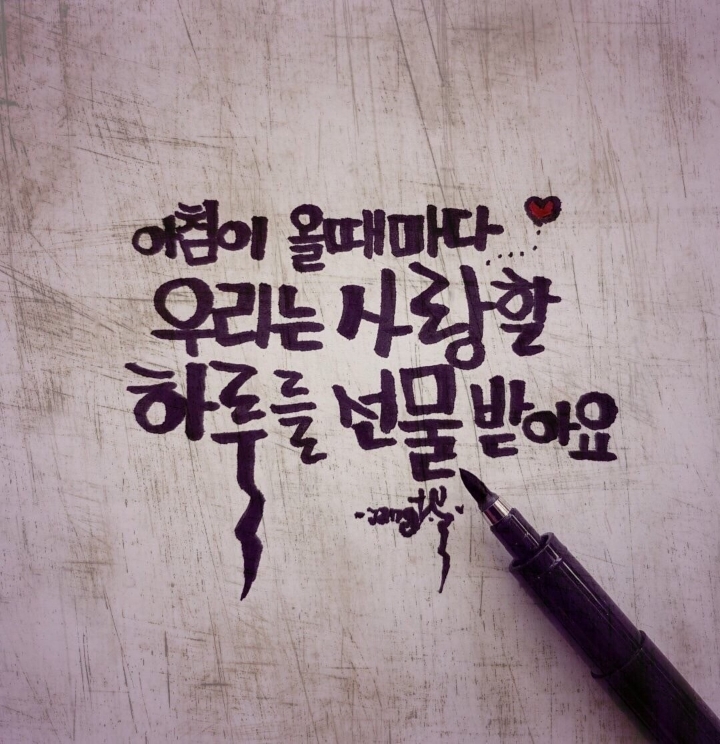 아침이 올때마다
우리는 사랑할
하루를 선물 받아요